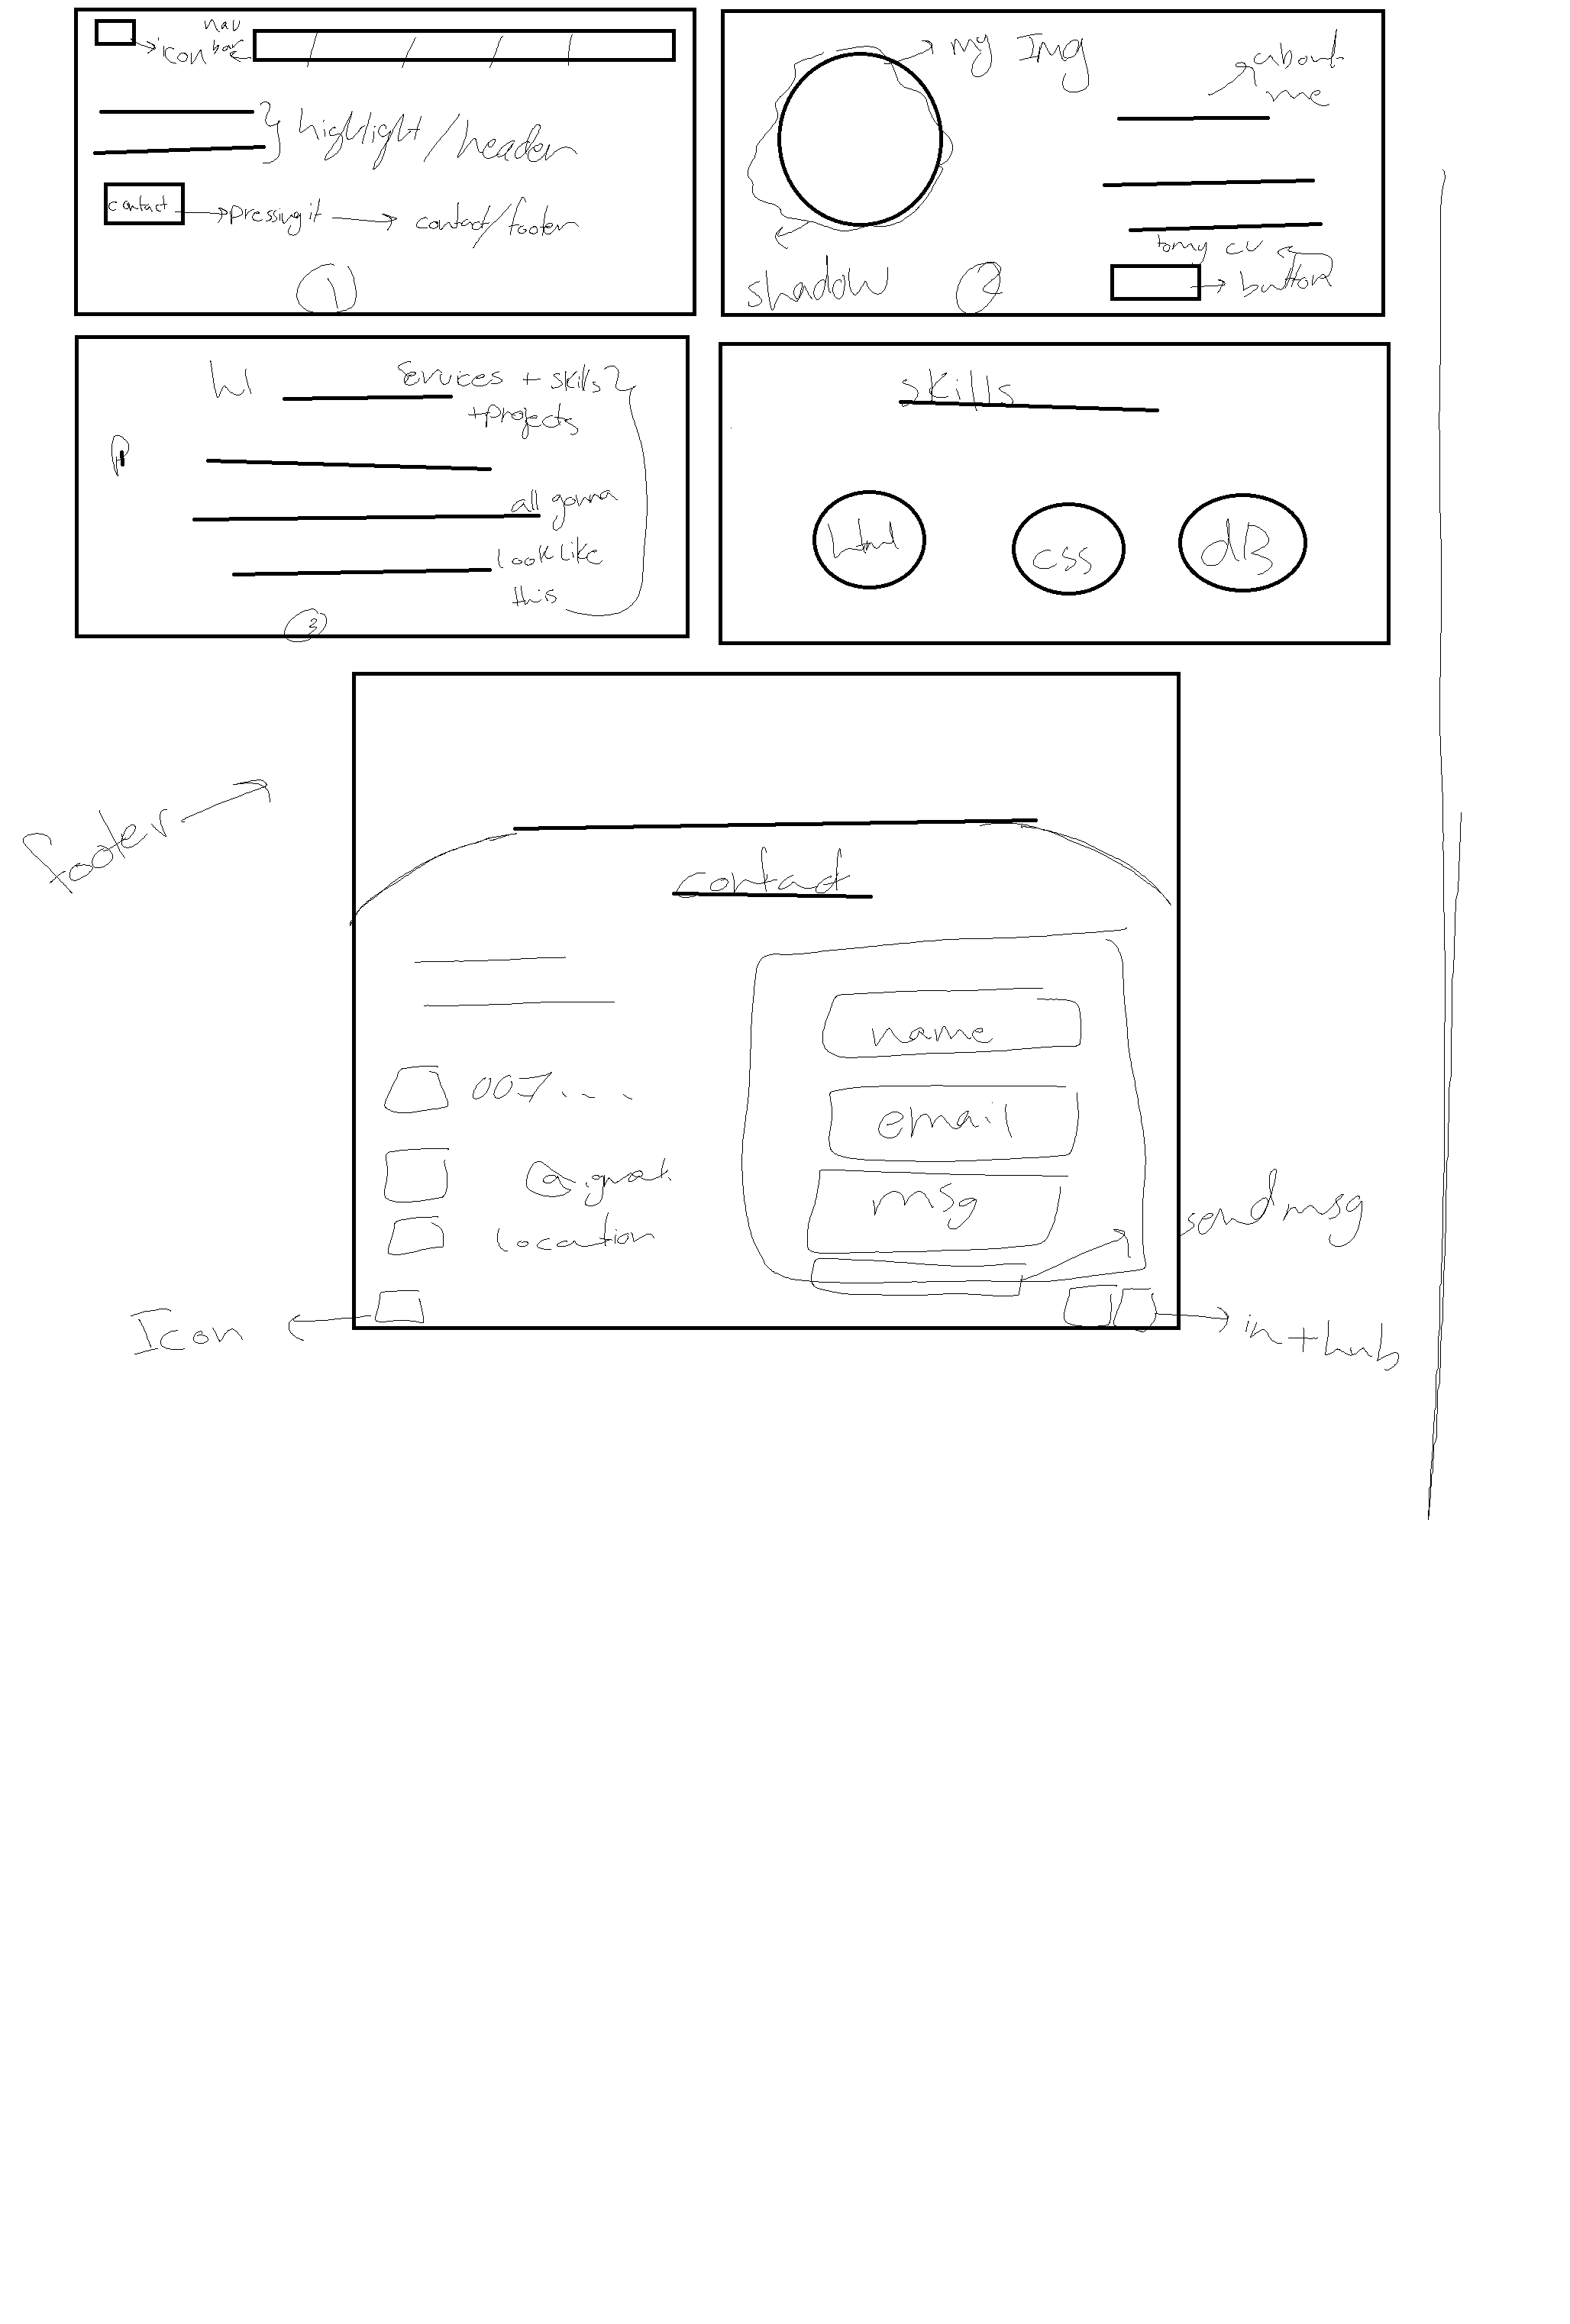 nav
icon bar
highlight/header
contact
pressing it
contact/footer
1
my Img
about
me
shadow
2
to my cv
button
h1
services + skills
+ projects
P
all gonna
look like
this
3
skills
html
css
dB
footer
contact
name
007...
email
@gmail.
msg
location
send msg
Icon
in + hub